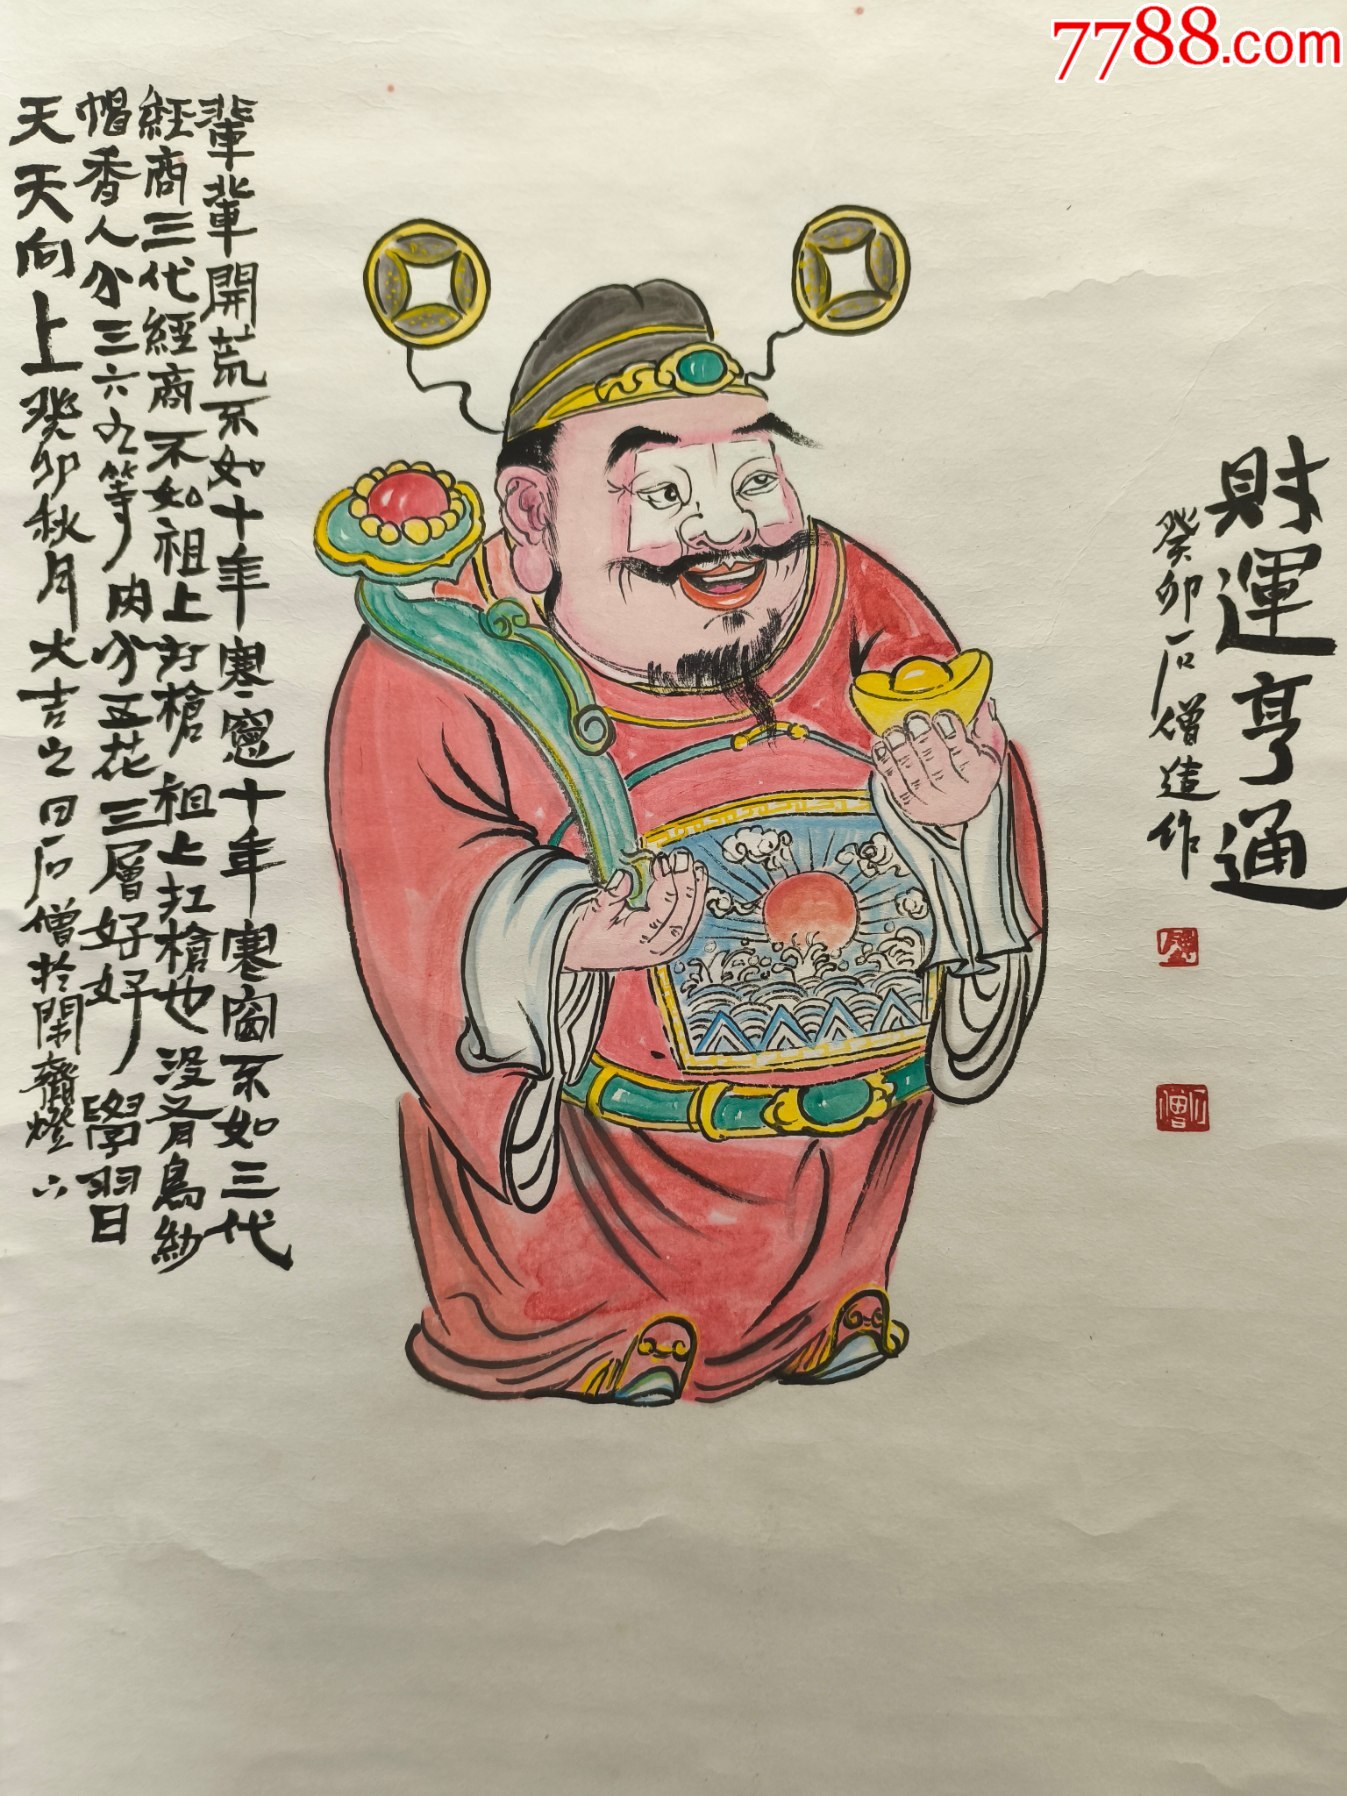 7788.com
財運亨通
癸卯石僧造作
輩輩開荒不如十年寒窻十年寒窗不如三代
經商三代經商不如祖上扛槍祖上扛槍也没有烏紗
帽香人分三六九等肉分五花三層好好學習
天天向上癸卯秋月大吉之日石僧於閑齋燈下